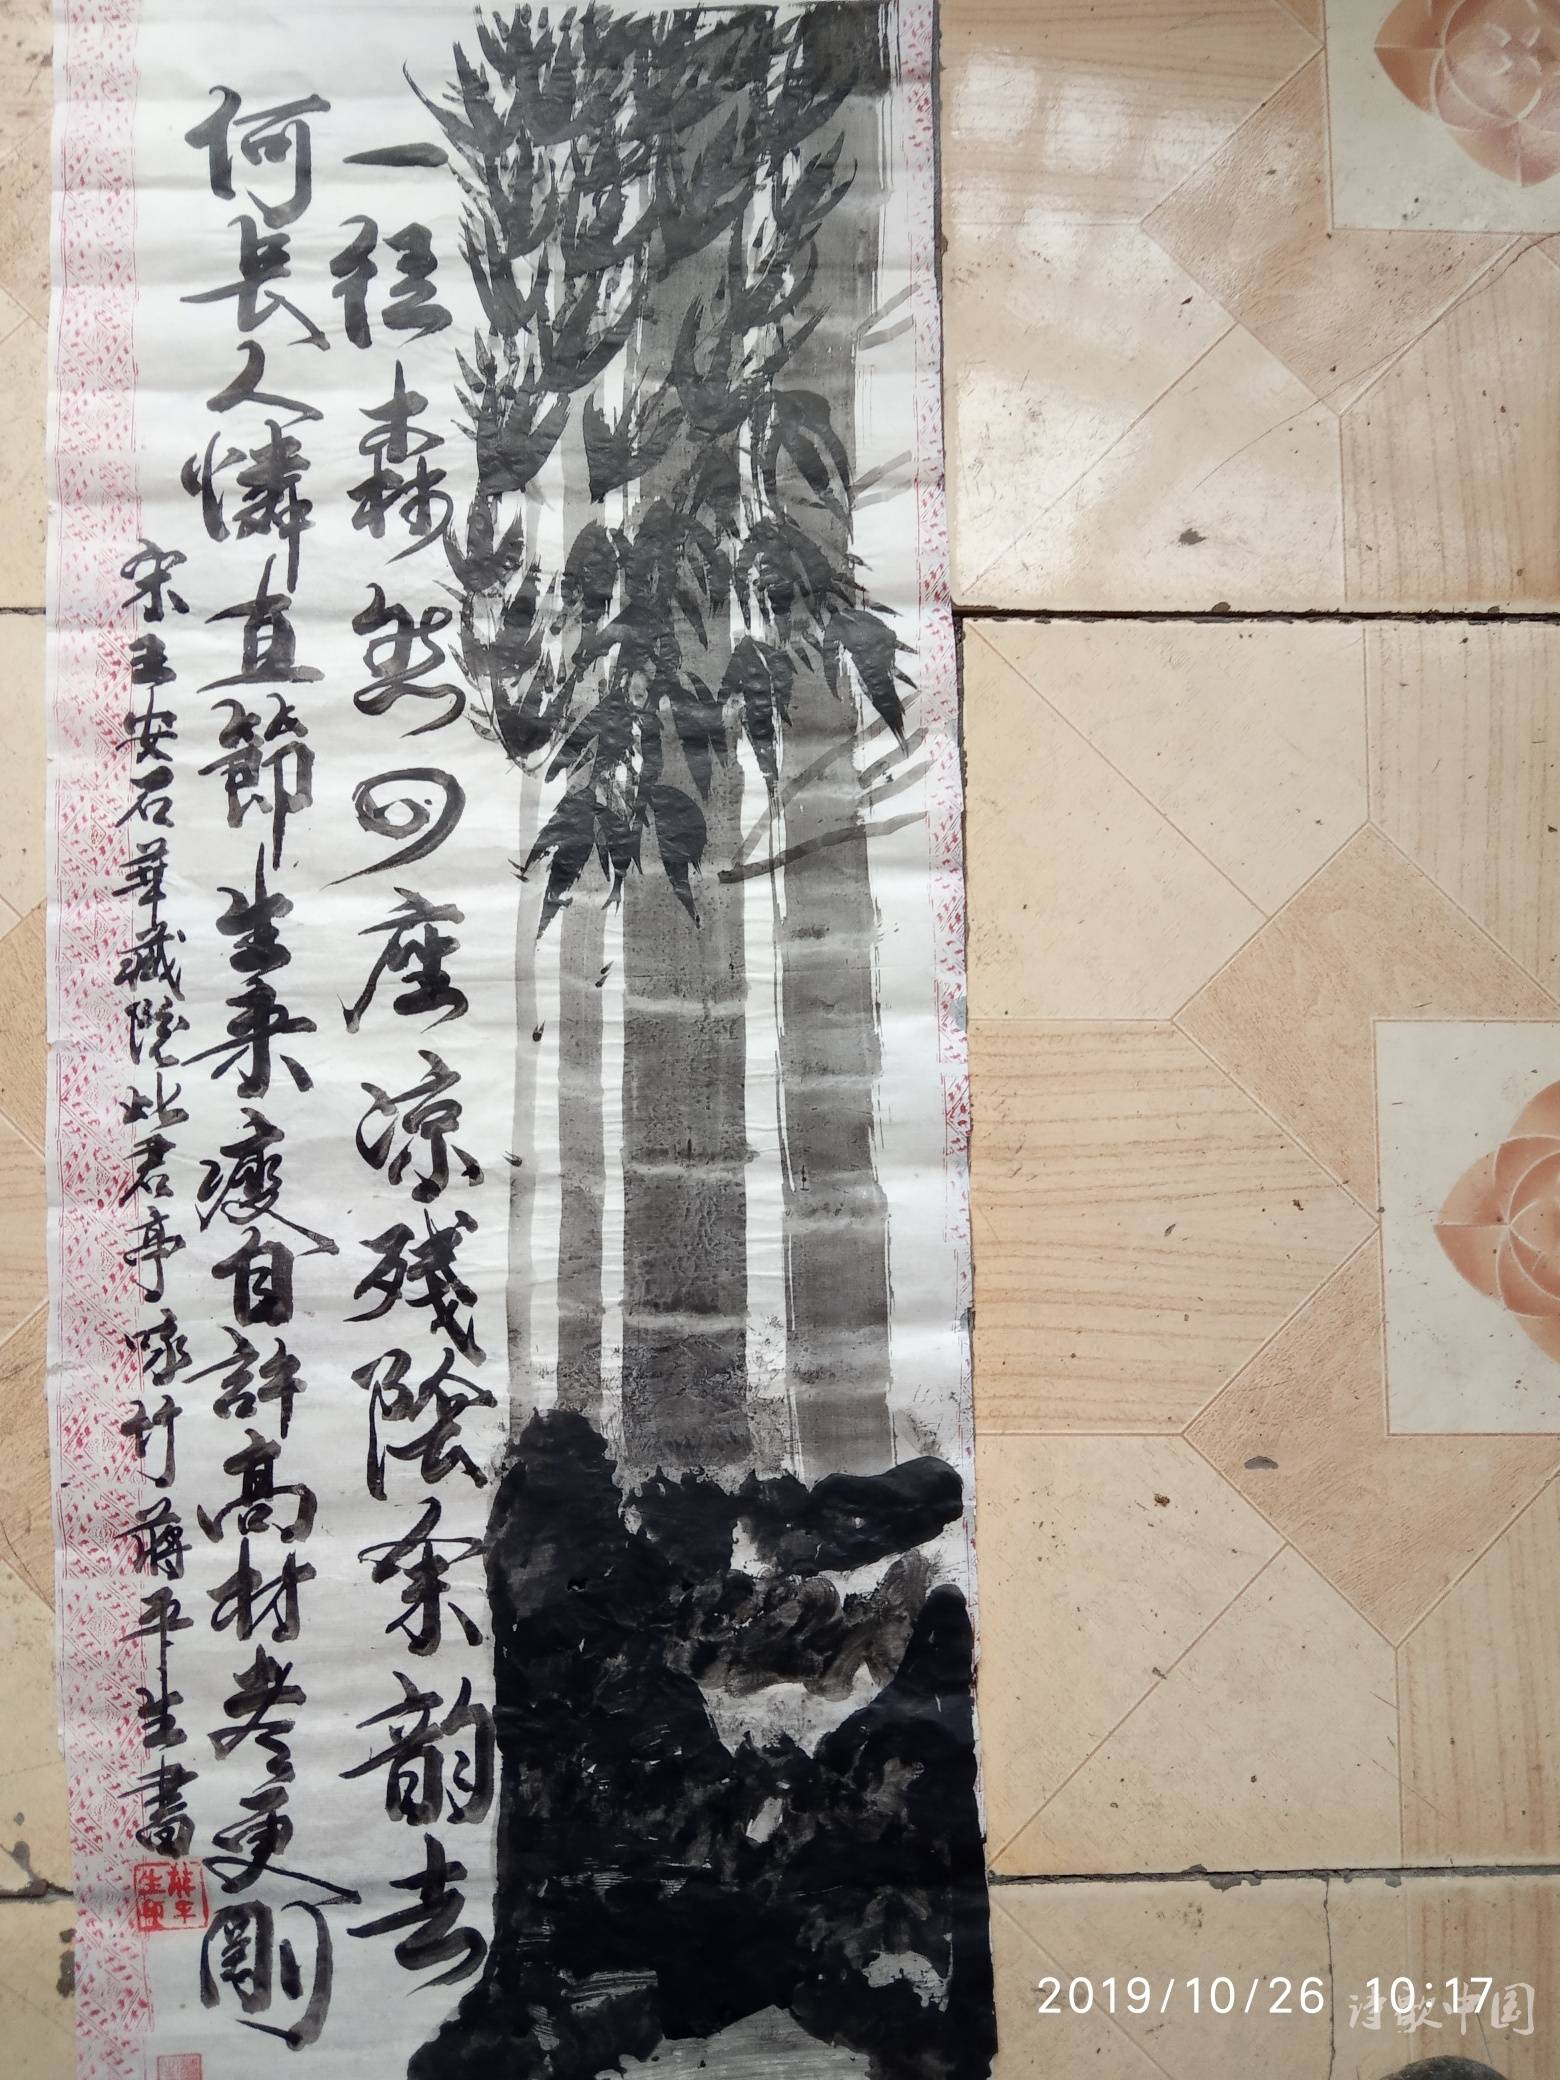 一径森然四座凉残阴余韵去
何长人憐直節生来瘦自許高材老更剛
宋王安石華藏院此君亭咏竹蒋平生書
2019/10/26 10:17
诗歌中国